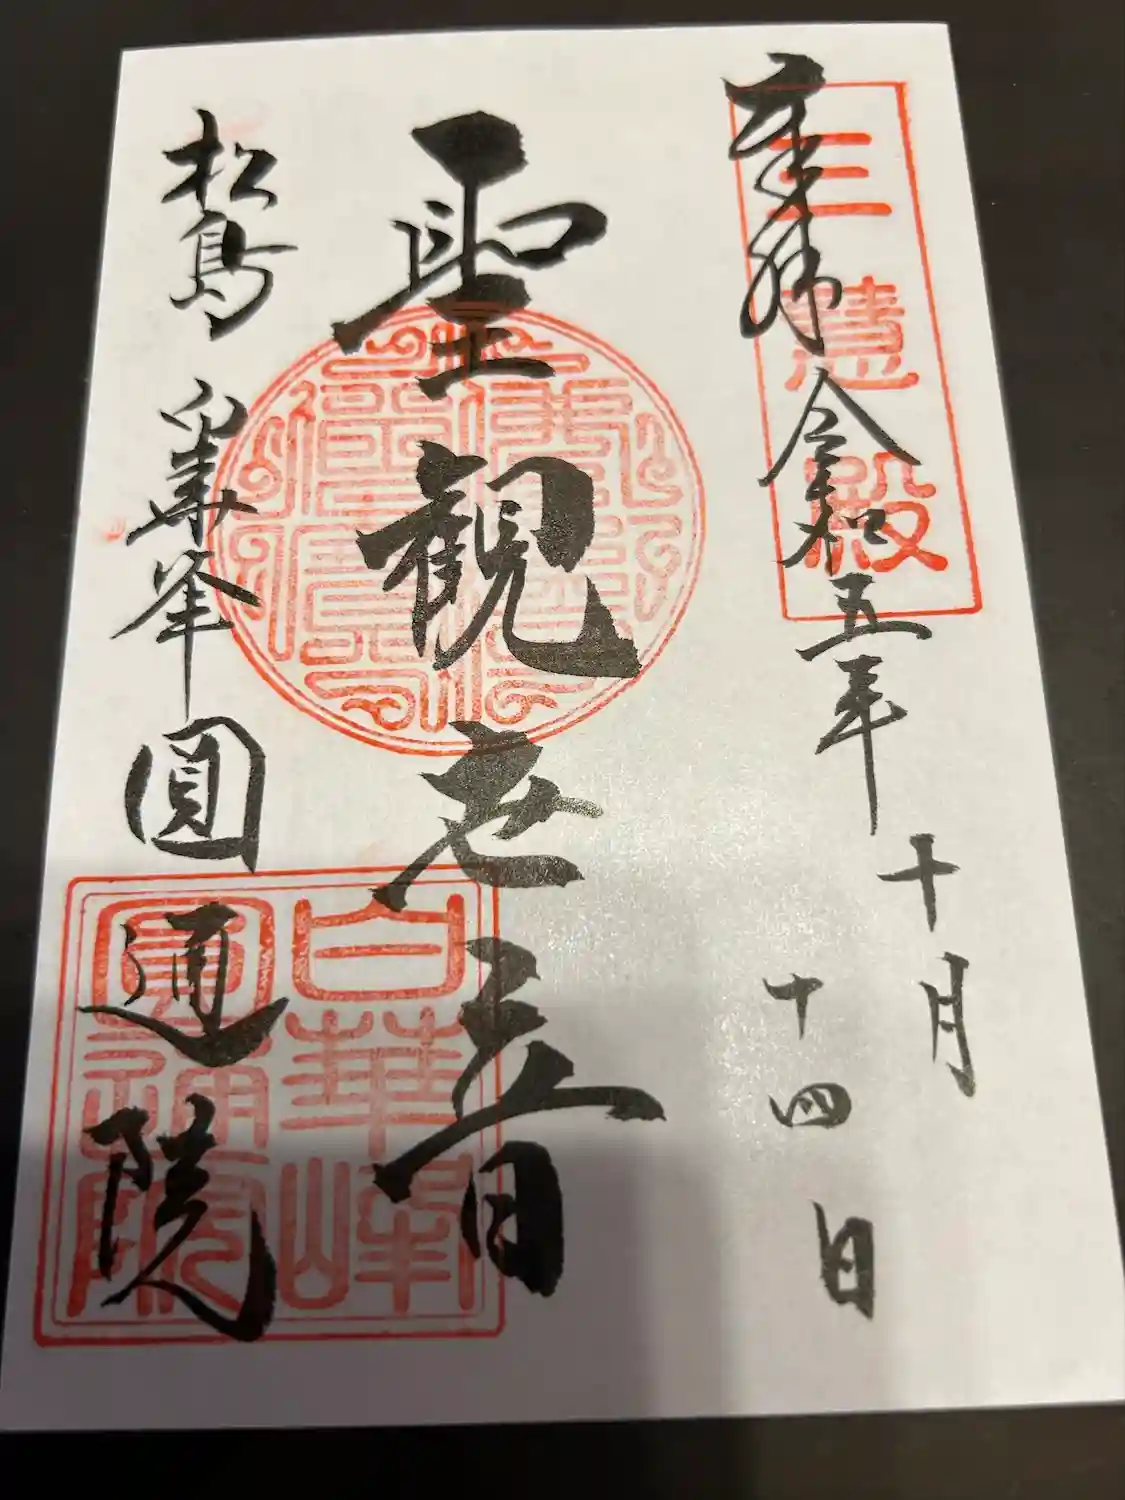 奉拝 令和五年
十月
十四日
三慧殿
聖観世音
松島 白華峯 圓通院
白華峰
圓通院